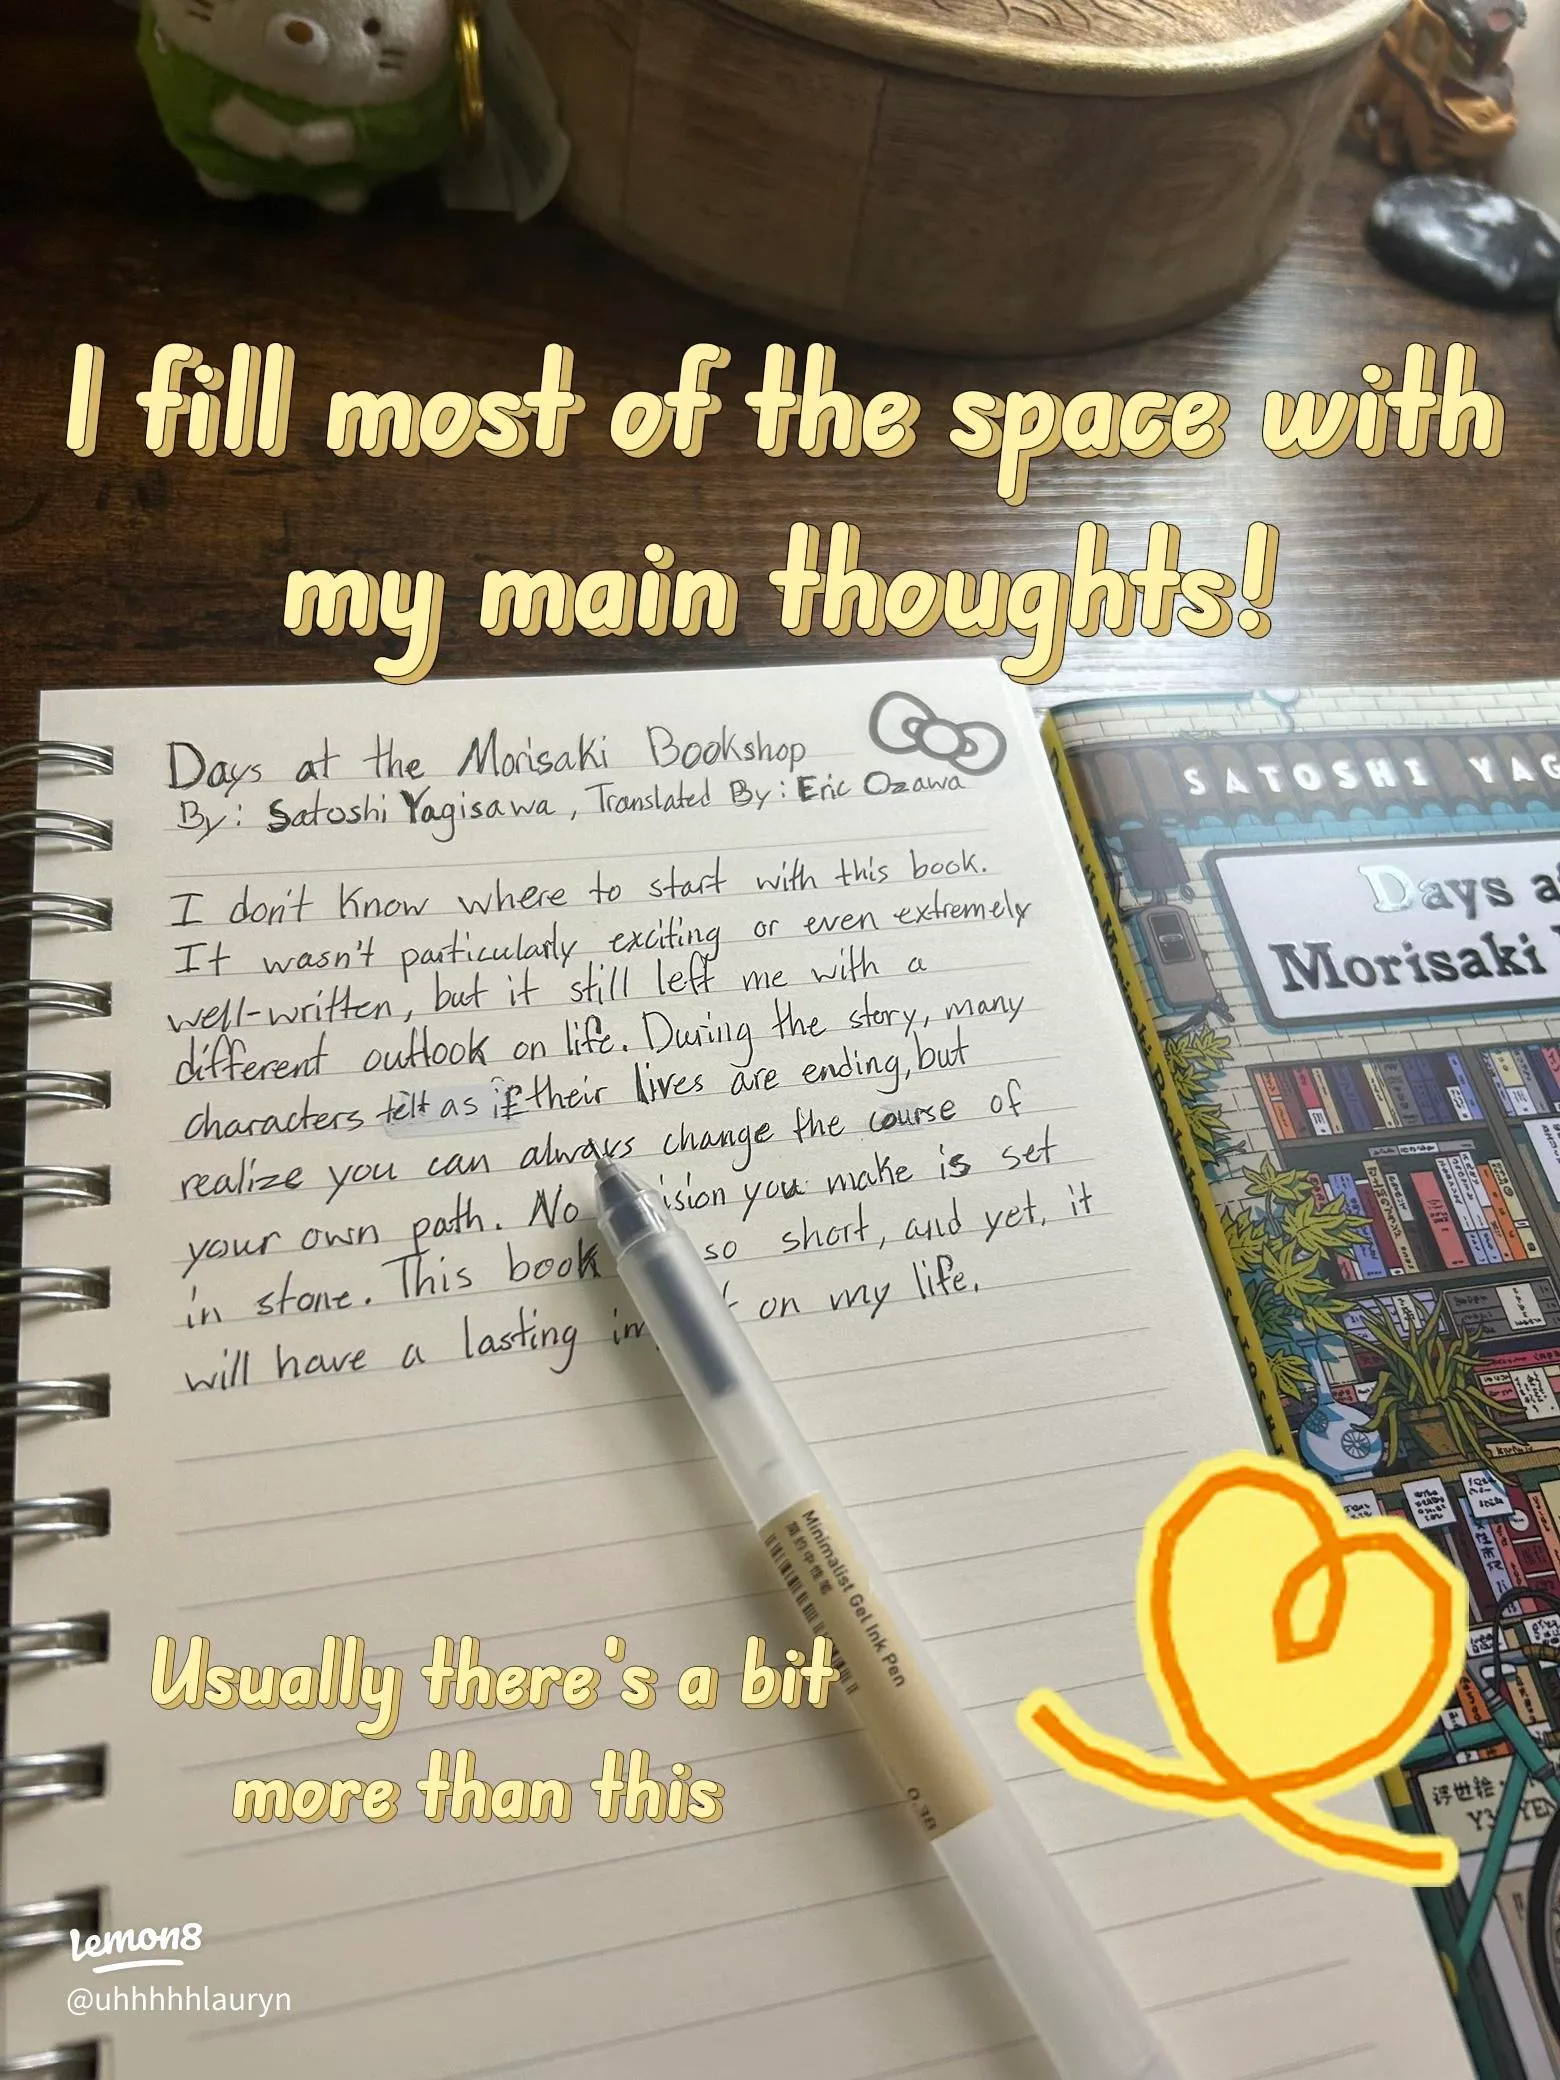 I fill most of the space with
my main thoughts!
Days at the Morisaki Bookshop
By: Satoshi Yagisawa, Translated By: Eric Ozawa
I don't know where to start with this book.
It wasn't particularly exciting or even extremely
well-written, but it still left me with a
different outlook on life. During the story, many
characters felt as if their lives are ending, but
realize you can always change the course of
your own path. No ision you make is set
in stone. This book so short, and yet, it
will have a lasting im t on my life.
SATOSHI YAG
Days a
Morisaki
Minimalist Gel Ink Pen
简约中性笔
0.38
Usually there's a bit
more than this
浮世绘
lemon8
@uhhhhhhlauryn